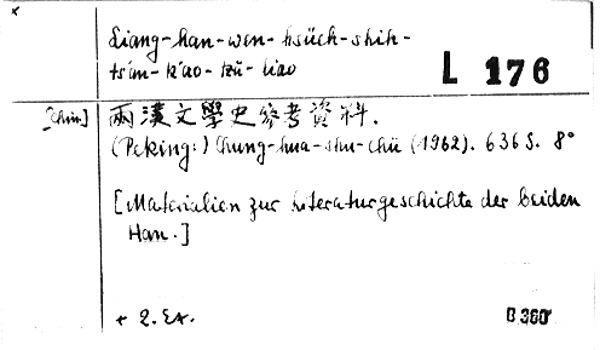 x
Liang-han-wen-hsüeh-shih-
ts'an-k'ao-tzŭ-liao
L 176
[Chin.] 兩漢文學史參考資料.
(Peking:) Chung-hua-shu-chü (1962). 636 S. 8°
[Materialien zur Literaturgeschichte der beiden
Han.]
+ 2. Ex.